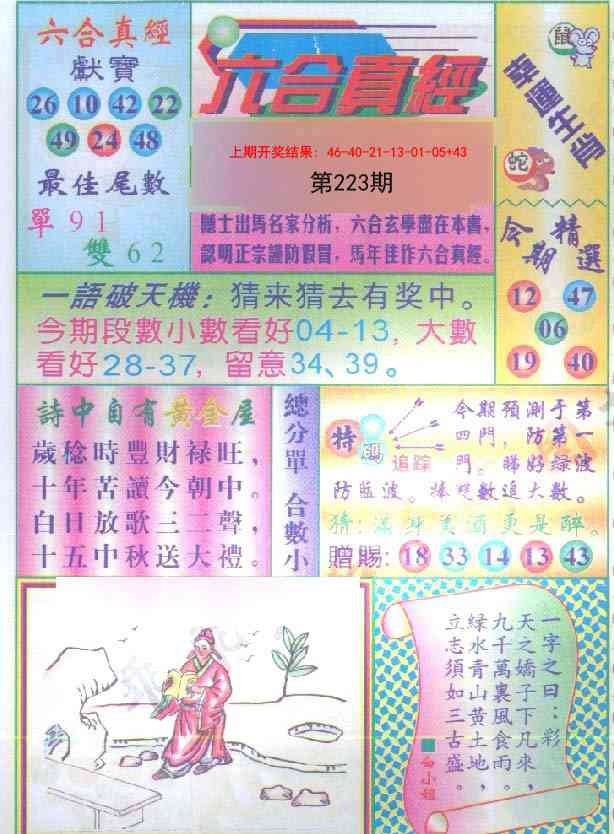 六合真經
獻寶
26 10 42 22
49 24 48
最佳尾數
單 9 1
雙 6 2
六合真經
上期开奖结果：46-40-21-13-01-05+43
第223期
隱士出馬名家分析，六合玄學盡在本書，
認明正宗謹防假冒，馬年佳作六合真經。
鼠
幸運生肖
蛇
今期精選
12 47
06
19 40
一語破天機：猜来猜去有奖中。
今期段數小數看好04-13，大數
看好28-37，留意34、39。
詩中自有黃金屋
歲稔時豐財禄旺，
十年苦讀今朝中。
白日放歌三二聲，
十五中秋送大禮。
總分單 合數小
特碼
追踪
今期預測于第
四門，防第一
門。睇好绿波
防藍波。捧雙數追大數。
猜：滿身美酒更是醉。
贈賜：18 33 14 13 43
一字之曰：彩
天之嬌子下凡來，
九千萬裏風食雨。
緑水青山黄土地，
立志須如三古盛。
白小姐